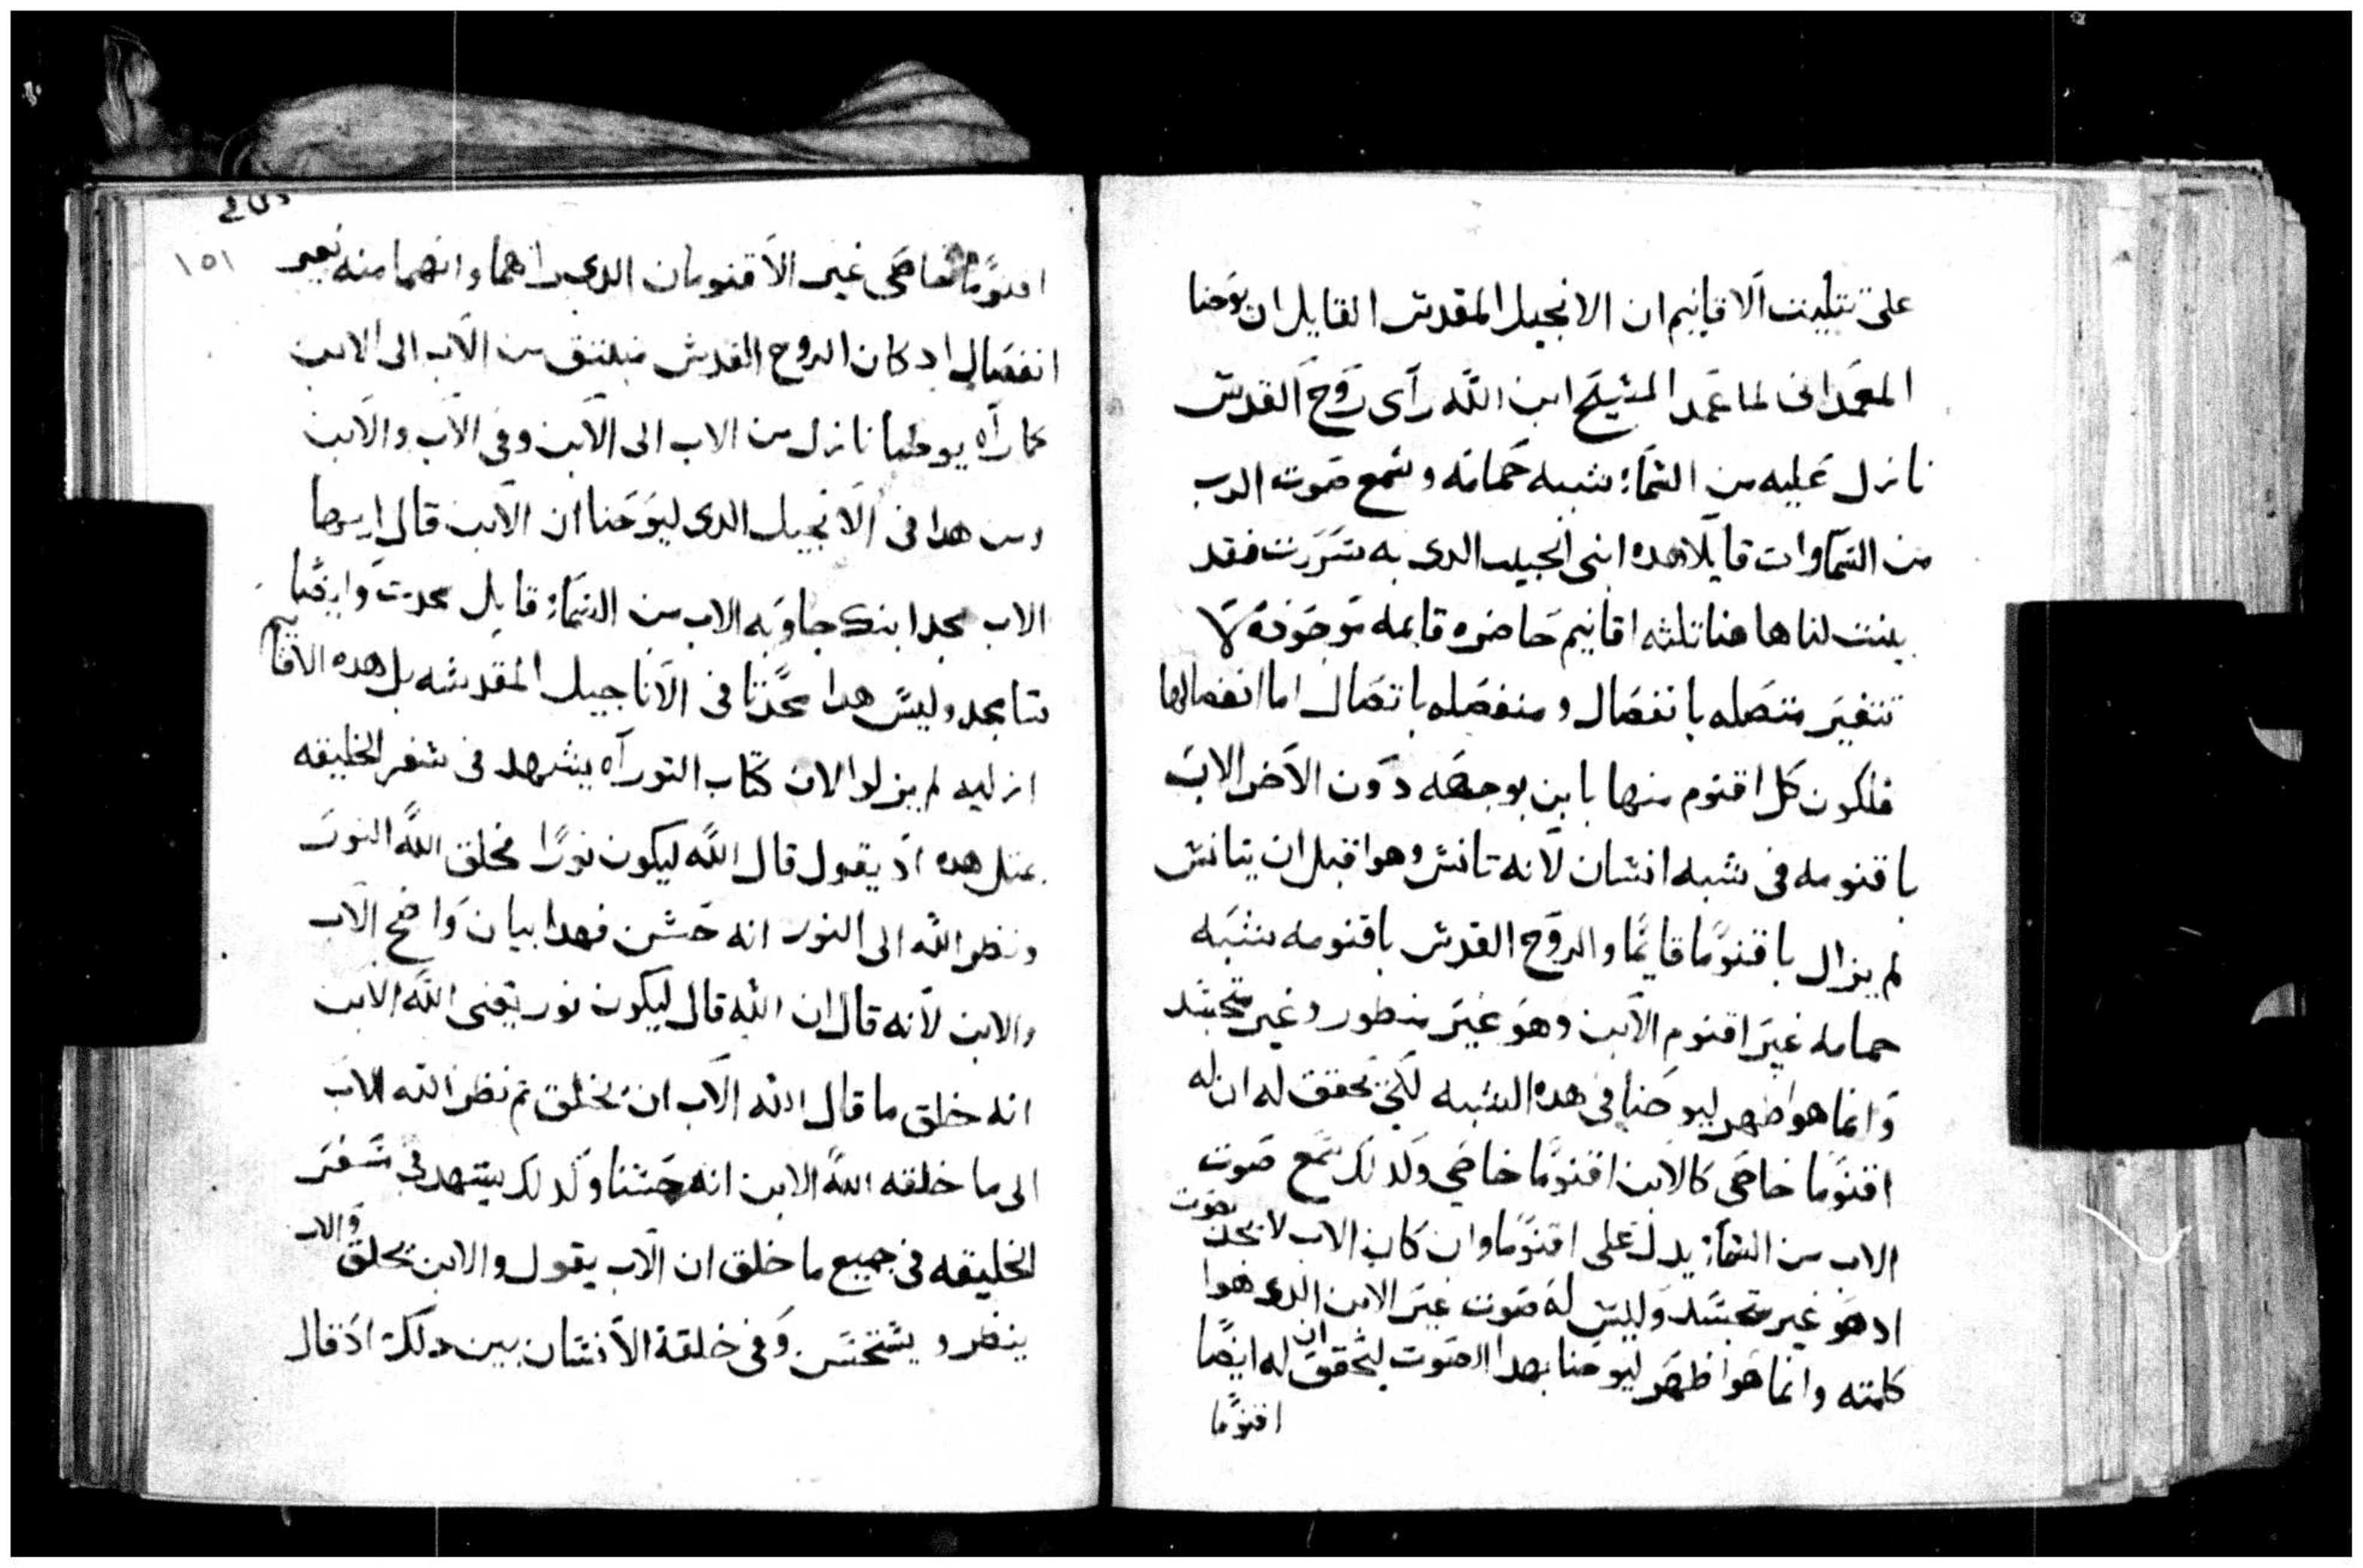 على تتليت الاقانيم ان الانجيل المقدس القايل ان يوحنا
المعمدانى لما عمد المسيح ابن الله رآى روح القدس
نازل عليه من السمآ: شبه حمامه وسمع صوت الرب
من السماوات قايلًا هده ابنى الحبيب الدى به سررت فقد
بينت لنا هاهنا تلثه اقانيم حاضره قايمه موجوده لا
تتغير متصله بانفصال ومنفصله باتصال اما انفصالها
فلكون كل اقنوم منها باين بوجهه دون الاخر الابن
باقنومه فى شبه انسان لانه تانس وهوا قبل ان يتانس
لم يزال باقنومًا قايمًا والروح القدس باقنومه شبه
حمامه غير اقنوم الابن وهو غير منظور وغير متجسد
وانما هوا ظهر ليوحنا فى هده الشبه لكى يحقق له ان له
اقنومًا خاصى كالابن اقنومًا خاصي ولدلك سمع صوت
الاب من السمآ: يدل على اقنومًا وان كان الاب لا يحد بصوت
اد هو غير متجسد وليس له صوت غير الابن الدى هوا
كلمته وانما هوا ظهر ليوحنا بهدا الصوت ليحقق ان له ايضًا
اقنومًا
١٥١
اقنومًا خاصى غير الاقنومان الدى راهما وانهما منه بغير
انفصال اد كان الروح القدس منبتق من الاب الى الابن
كما رآه يوحنا نازل من الاب الى الابن وفى الاب والابن
ومن هدا فى الانجيل الدى ليوحنا ان الابن قال ايها
الاب مجد ابنك جاوبه الاب من السمآ: قايل مجدت وايضًا
سامجد وليس هدا محدتًا فى الاناجيل المقدسه بل هده الاقانيم
ازليه لم يزلوا لان كتاب التوراه يشهد فى سفر الخليقه
بمتل هده اد يقول قال الله ليكون نورًا فخلق الله النور
ونظر الله الى النور انه حسن فهدا بيان واضح الاب
والابن لانه قال ان الله قال ليكون نور يعنى الله الابن
انه خلق ما قال الله الاب ان يخلق تم نظر الله الاب
الى ما خلقه الله الابن انه حسنا وكدلك يشهد فى سفر
الخليقه فى جميع ما خلق ان الاب يقول والابن يخلق والاب
ينظر ويستحسن وفى خلقة الانسان يبين دلك اد قال